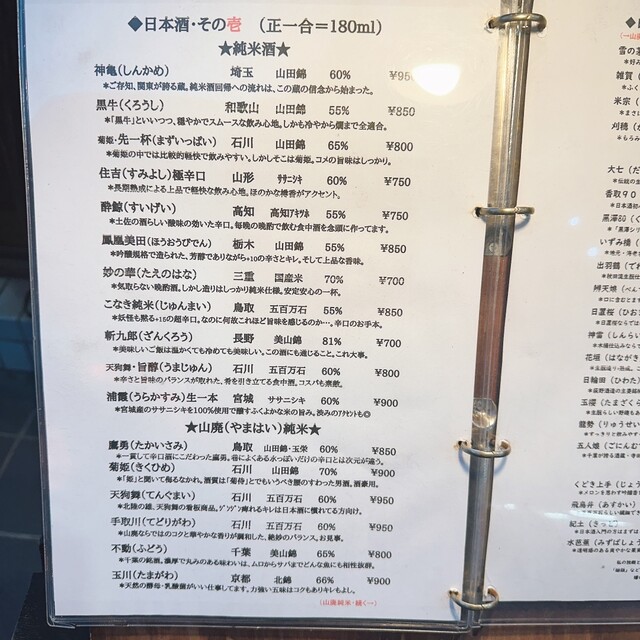 ◆日本酒・その壱 (正一合=180ml)
★純米酒★
神亀(しんかめ) 埼玉 山田錦 60% ¥950
＊ご存知、関東が誇る蔵。純米酒回帰への流れは、この蔵の信念から始まった。
黒牛(くろうし) 和歌山 山田錦 55% ¥850
＊「黒牛」といいつつ、穏やかでスムースな飲み心地。しかも冷やから燗まで全適合。
菊姫・先一杯(まずいっぱい) 石川 山田錦 65% ¥800
＊菊姫の中では比較的軽快で飲みやすい。しかしそこは菊姫。コメの旨味はしっかり。
住吉(すみよし)極辛口 山形 ササニシキ 60% ¥750
＊長期熟成による上品で軽快な飲み心地。ほのかな樽香がアクセント。
酔鯨(すいげい) 高知 高知アキツホ 55% ¥750
＊土佐の酒らしい酸味の効いた辛口。毎晩の晩酌で飲む食中酒を念頭に作ってます。
鳳凰美田(ほうおうびでん) 栃木 山田錦 55% ¥850
＊吟醸規格で造られた、芳醇でありながら+10の辛さとキレ。そして上品な香味。
妙の華(たえのはな) 三重 国産米 70% ¥700
＊気取らない晩酌酒。しかし造りはしっかり純米仕様。安定安心の一杯。
こなき純米(じゅんまい) 鳥取 五百万石 55% ¥850
＊妖怪も黙る+15の超辛口。なのに何故これほど旨味を感じるのか…。辛口のお手本。
斬九郎(ざんくろう) 長野 美山錦 81% ¥700
＊美味しいご飯は温かくても冷めても美味しい。この酒にも通じること。これ大事。
天狗舞・旨醇(うまじゅん) 石川 五百万石 60% ¥800
＊辛さと旨味のバランスが取れた、肴を引き立てる食中酒。コスパも素敵。
浦霞(うらかすみ)生一本 宮城 ササニシキ 60% ¥900
＊宮城産のササニシキを100%使用で醸すふくよかな米の旨み。渋みのアクセントも◎
★山廃(やまはい)純米★
鷹勇(たかいさみ) 鳥取 山田錦・玉栄 60% ¥850
＊一貫して辛口酒にこだわった鷹勇。巷によくある水っぽいだけの辛口とは次元が違う。
菊姫(きくひめ) 石川 山田錦 70% ¥900
＊「姫」と聞いて侮るなかれ。酒質は「菊侍」とでもいうべき腰のすわった男酒。酒豪用。
天狗舞(てんぐまい) 石川 五百万石 60% ¥950
＊北陸の雄、天狗舞の看板商品。ゾンゾン痺れるキレは日本酒に慣れてる方向け。
手取川(てどりがわ) 石川 五百万石 60% ¥950
＊山廃ならではのコクと華やかな香りが調和した、絶妙のバランス。お見事。
不動(ふどう) 千葉 美山錦 65% ¥800
＊千葉の銘酒。濃厚で丸みのある味わいは、ムロからサバまでどんな魚にも相性抜群。
玉川(たまがわ) 京都 北錦 66% ¥900
＊天然の酵母・乳酸菌がいい仕事してます。力強い五味はコクもありキレもよし。
(山廃純米・続く→)
雪の茅
雑賀(
米宗(
刈穂(か
大七(だ
香取90(
黒澤80(く
いずみ橋(
出羽鶴(でわ
辨天娘(べん
日置桜(ひお
神雷(しんらい
花垣(はながき
日輪田(ひわた
玉櫻(たまざくら
龍勢(りゅうせい
五人娘(ごにんむす
くどき上手(じょう
飛鳥井(あすかい)
紀土(きっど)
水芭蕉(みずばしょう